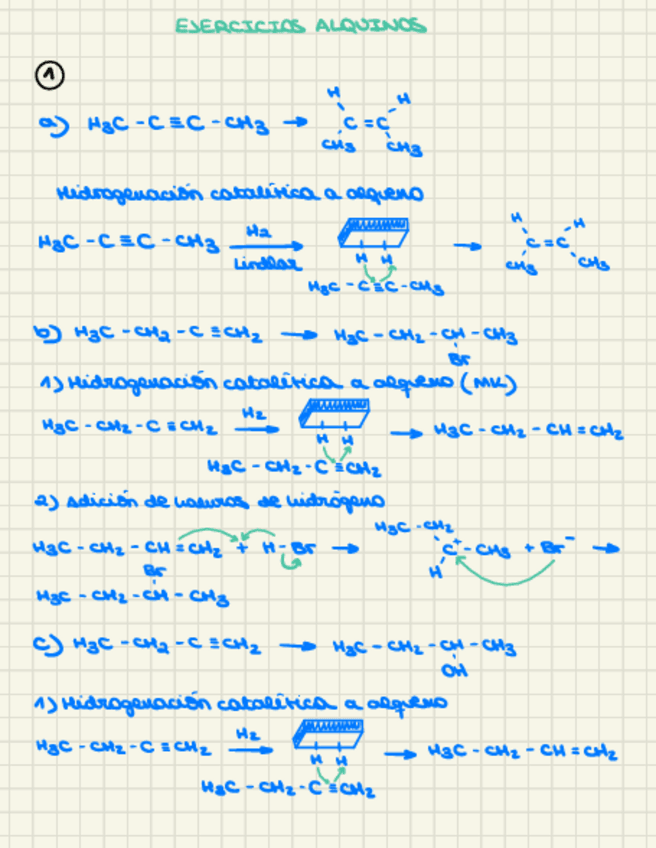 EJERCICIOS ALQUINOS
1
a) H3C - C ≡ C - CH3 → H CH3 C = C H CH3
Hidrogenación catalítica a alqueno
H3C - C ≡ C - CH3 H2 Lindlar → H H H3C - C ≡ C - CH3 → H CH3 C = C H CH3
b) H3C - CH2 - C ≡ CH2 → H3C - CH2 - CH - CH3
Br
1) Hidrogenación catalítica a alqueno (MK)
H3C - CH2 - C ≡ CH2 H2 → H H → H3C - CH2 - CH = CH2
H3C - CH2 - C ≡ CH2
2) Adición de haluros de hidrógeno
H3C - CH2 - CH = CH2 + H - Br → H3C - CH2 H C+ - CH3 + Br- →
Br
H3C - CH2 - CH - CH3
c) H3C - CH2 - C ≡ CH2 → H3C - CH2 - CH - CH3
OH
1) Hidrogenación catalítica a alqueno
H3C - CH2 - C ≡ CH2 H2 → H H → H3C - CH2 - CH = CH2
H3C - CH2 - C ≡ CH2